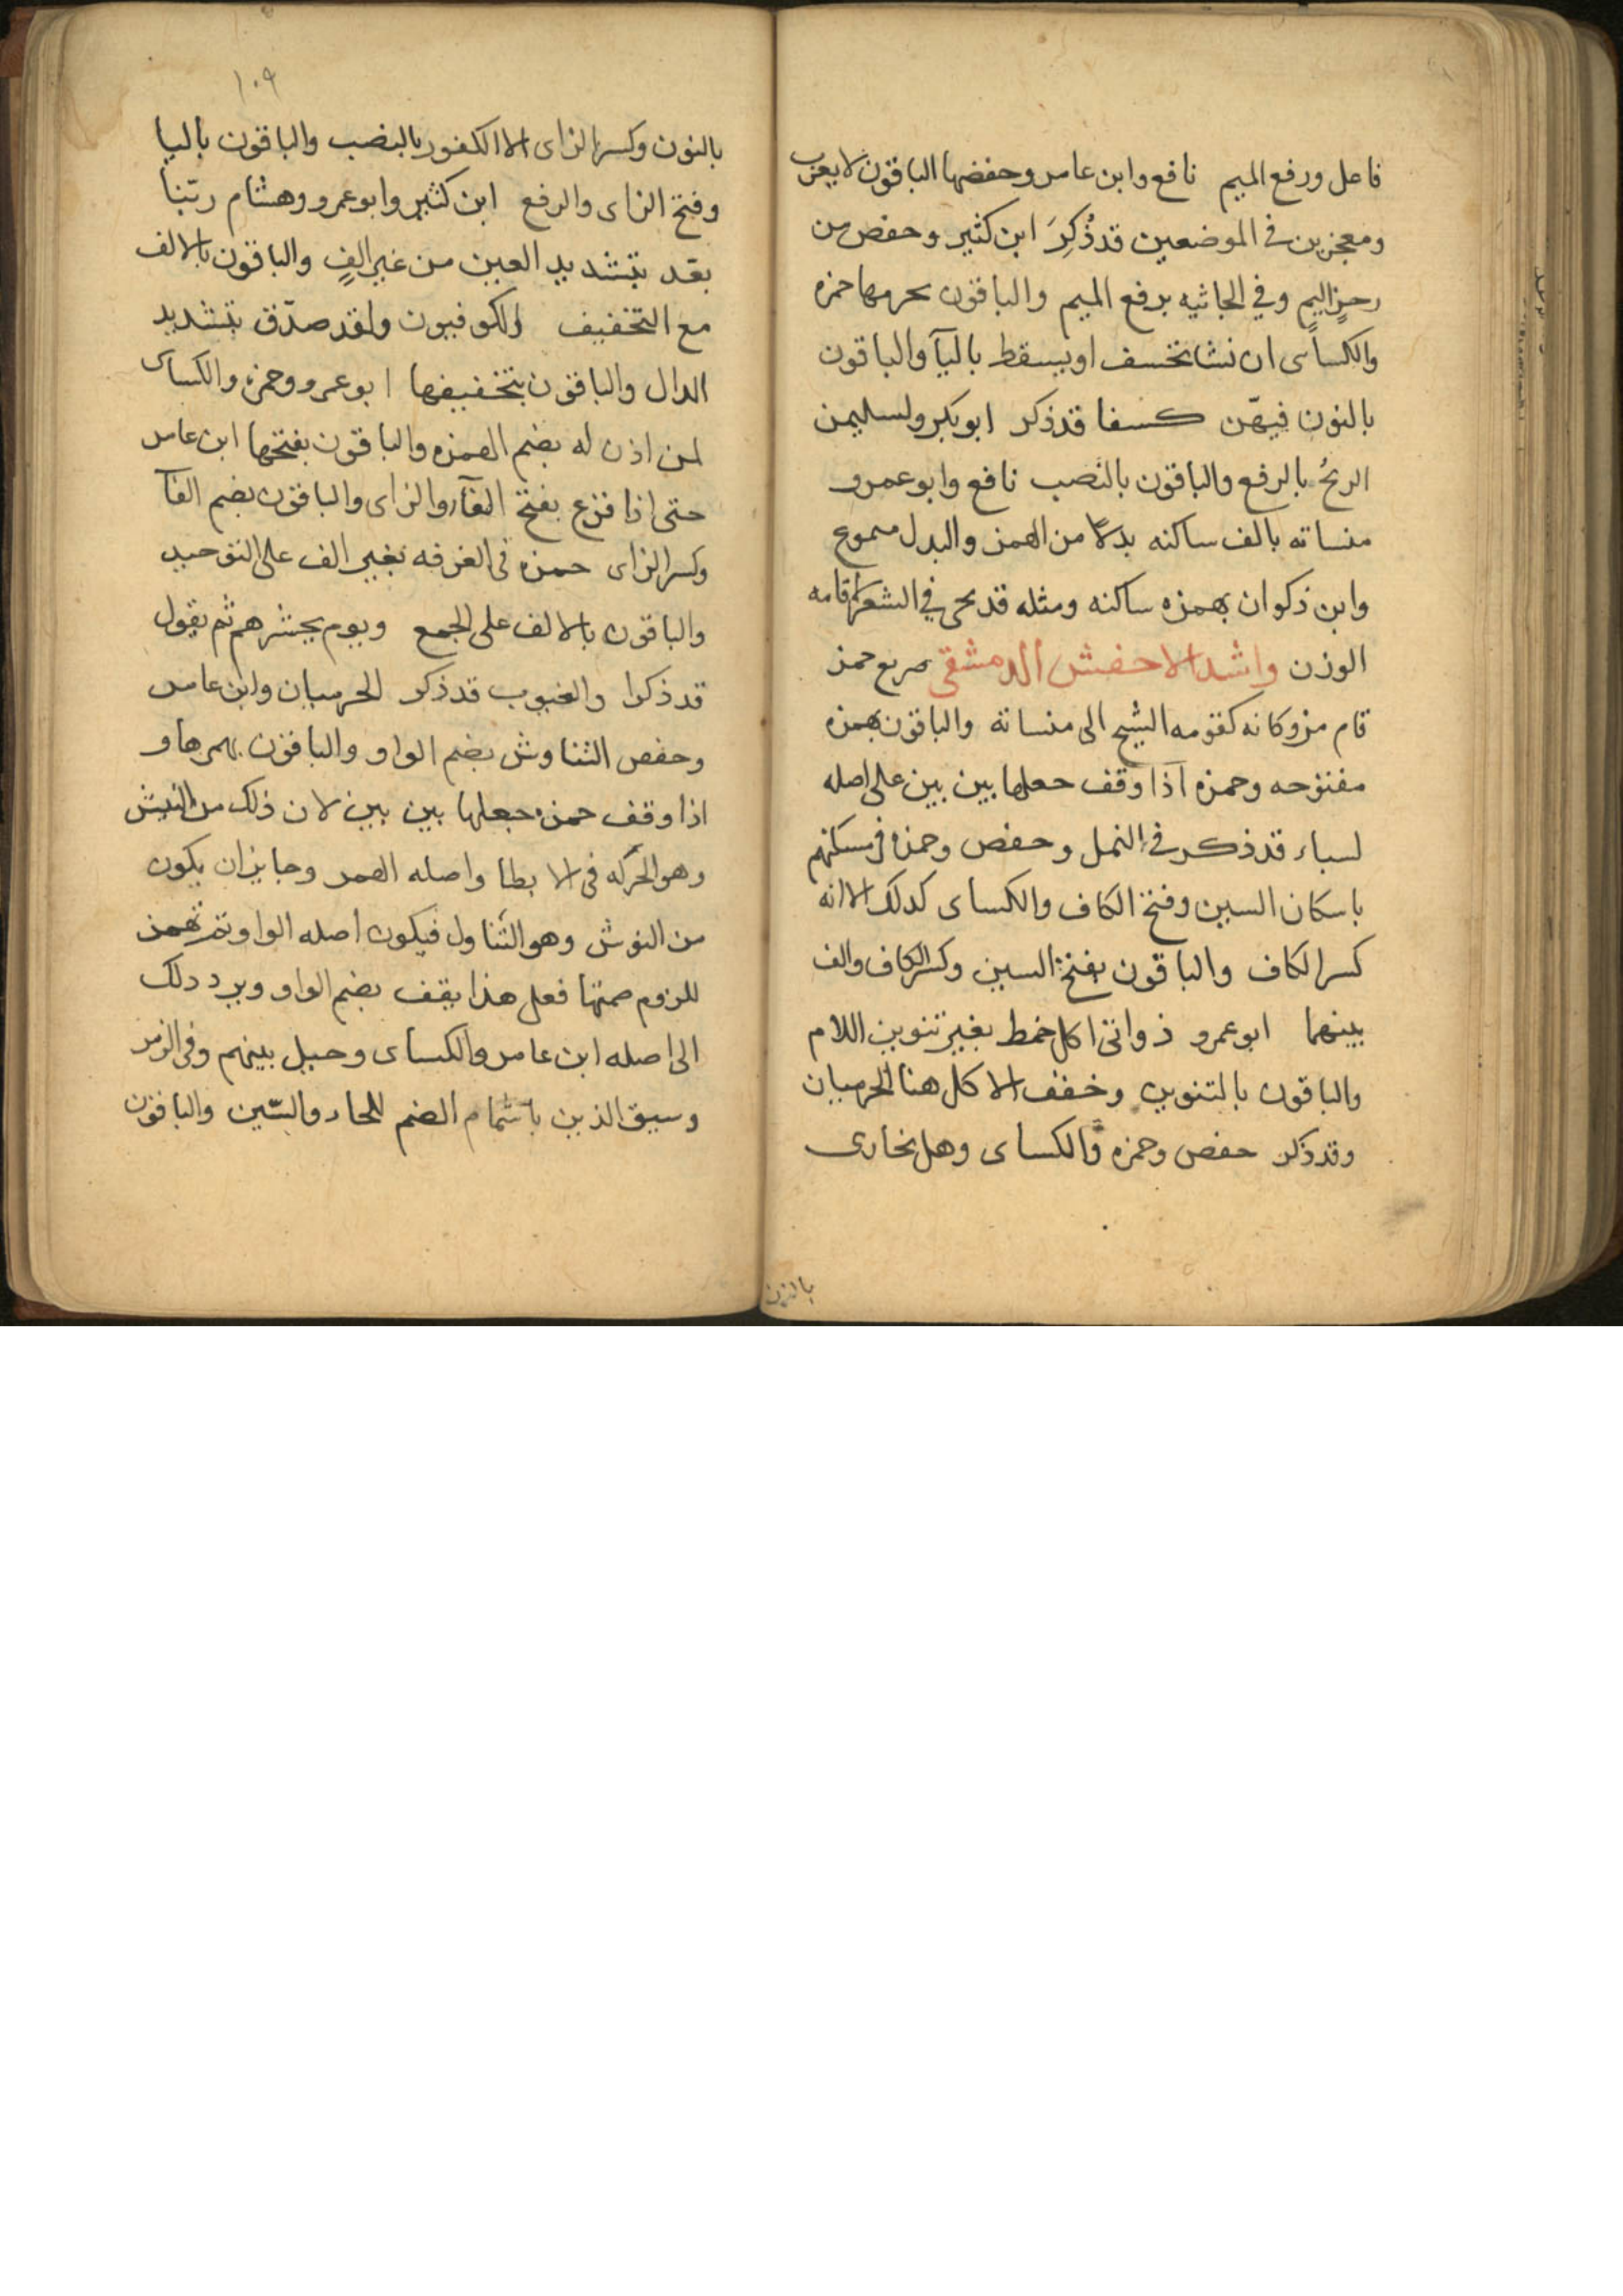 فاعل ورفع الميم نافع وابن عامر وحفضها الباقون لا يعزب
ومعجزين في الموضعين قد ذُكِرَ ابن كثير وحفص من
رجزٍ اليم وفي الجاثيه برفع الميم والباقون بحرمها حمزه
والكساى ان نشا نخسف او يسقط باليآ والباقون
بالنون فيهّن كسفا قد ذكر ابو بكر ولسليمن
الريحُ بالرفع والباقون بالنصب نافع وابو عمرو
منساته بالف ساكنه بدلاً من الهمز والبدل مسموع
وابن ذكوان بهمزه ساكنه ومثله قد يجى في الشعر لاقامه
الوزن وانشد الاخفش الدمشقى صريع خمر
قام من وكاته كقومه الشيخ الى منساته والباقون بهمزه
مفتوحه وحمزه اذا وقف جعلها بين بين على اصله
لسباء قد ذكر في النمل وحفص وحمزه في مسكنهم
باسكان السين وفتح الكاف والكساى كدلك الا انه
كسر الكاف والباقون بفتح السين وكسر الكاف والف
بينهما ابو عمرو ذواتى اكل خمط بغير تنوين اللام
والباقون بالتنوين وخفف الاكل هنا الحرميان
وقد ذكر حفص وحمزه والكساى وهل نجازى
بالنون
١٠٩
بالنون وكسر الزاى الا الكفور بالنصب والباقون باليا
وفتح الزاى والرفع ابن كثير وابو عمرو وهشام ربّنا
بعّد بتشديد العين من غير الفٍ والباقون بالالف
مع التخفيف الكوفيون ولقد صدّق بتشديد
الدال والباقون بتخفيفها ابو عمرو وحمزه والكساى
لمن اذن له بضم الهمزه والباقون بفتحها ابن عامر
حتى اذا فزع بفتح الفآ والزاى والباقون بضم الفآ
وكسر الزاى حمزه في الغرفه بغير الف على التوحيد
والباقون بالالف على الجمع ويوم يحشرهم ثم يقول
قد ذكرا والغيوب قد ذكر الحرميان وابن عامر
وحفص التناوش بضم الواو والباقون بهمزها و
اذا وقف حمزه جعلها بين بين لان ذلك من النيش
وهو الحركه في الابطا واصله الهمز وجايز ان يكون
من النوش وهو التناول فيكون اصله الواو ثم تهمز
للزوم ضمتها فعلى هذا يقف بضم الواو ويرد دلك
الى اصله ابن عامر والكساى وحيل بينهم وفي الزمر
وسيق الذين باشمام الضم للحاء والسّين والباقون